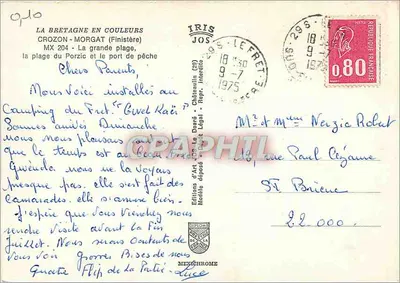 0,10
LA BRETAGNE EN COULEURS
CROZON - MORGAT (Finistère)
MX 204 - La grande plage,
la plage du Porzic et le port de pêche
IRIS
JOS
29S - LE FRET
18 H30
9 - 7
1975
29S -
18 H30
9 - 7
1975
0,80
REPUBLIQUE FRANÇAISE
Chers Parents,
Nous Voici installés au
Camping du Fret
Sommes arrivés Dimanche
nous nous plaisons
que le temps est au
nous ne la voyons
presque pas. elle s'est fait des
Camarades. elle s'amuse bien.
J'espère que Vous Viendrez nous
rendre visite avant la Fin
Juillet. Nous serons Contents de
Vous Voir Grosses Bises de nous
Quatre Flip de la Portée - Luce
Mr et Mme Robert
Rue Paul Cézanne
ST Brieuc
22.000.
Editions d'Art Jos Le Doaré - Châteaulin (29)
Modèle déposé - Dépôt Légal - Repr. interdite
CPAPHIL
MEXICHROME